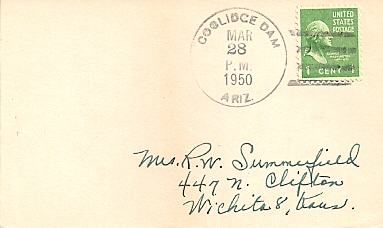 COOLIDGE DAM
MAR
28
P.M.
1950
ARIZ.
UNITED
STATES
POSTAGE
1 CENT 1
Mrs. R. W. Summerfield
447 N. Clifton
Wichita 8, Kans.